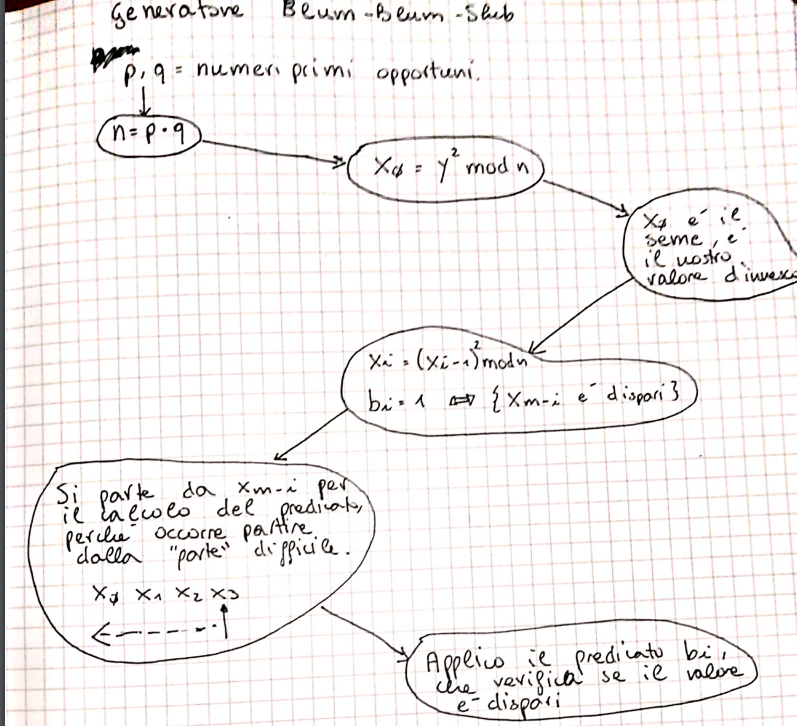 Generatore Blum-Blum-Shub
p, q = numeri primi opportuni.
n = p · q
X0 = y² mod n
X0 e' il
seme, e'
il nostro
valore d'innesco
Xi = (Xi-1)² mod n
bi = 1 ⟺ {Xm-i e' dispari}
Si parte da Xm-i per
il calcolo del predicato,
perche' occorre partire
dalla "parte" difficile.
X0 X1 X2 X3
Applico il predicato bi,
che verifica se il valore
e' dispari